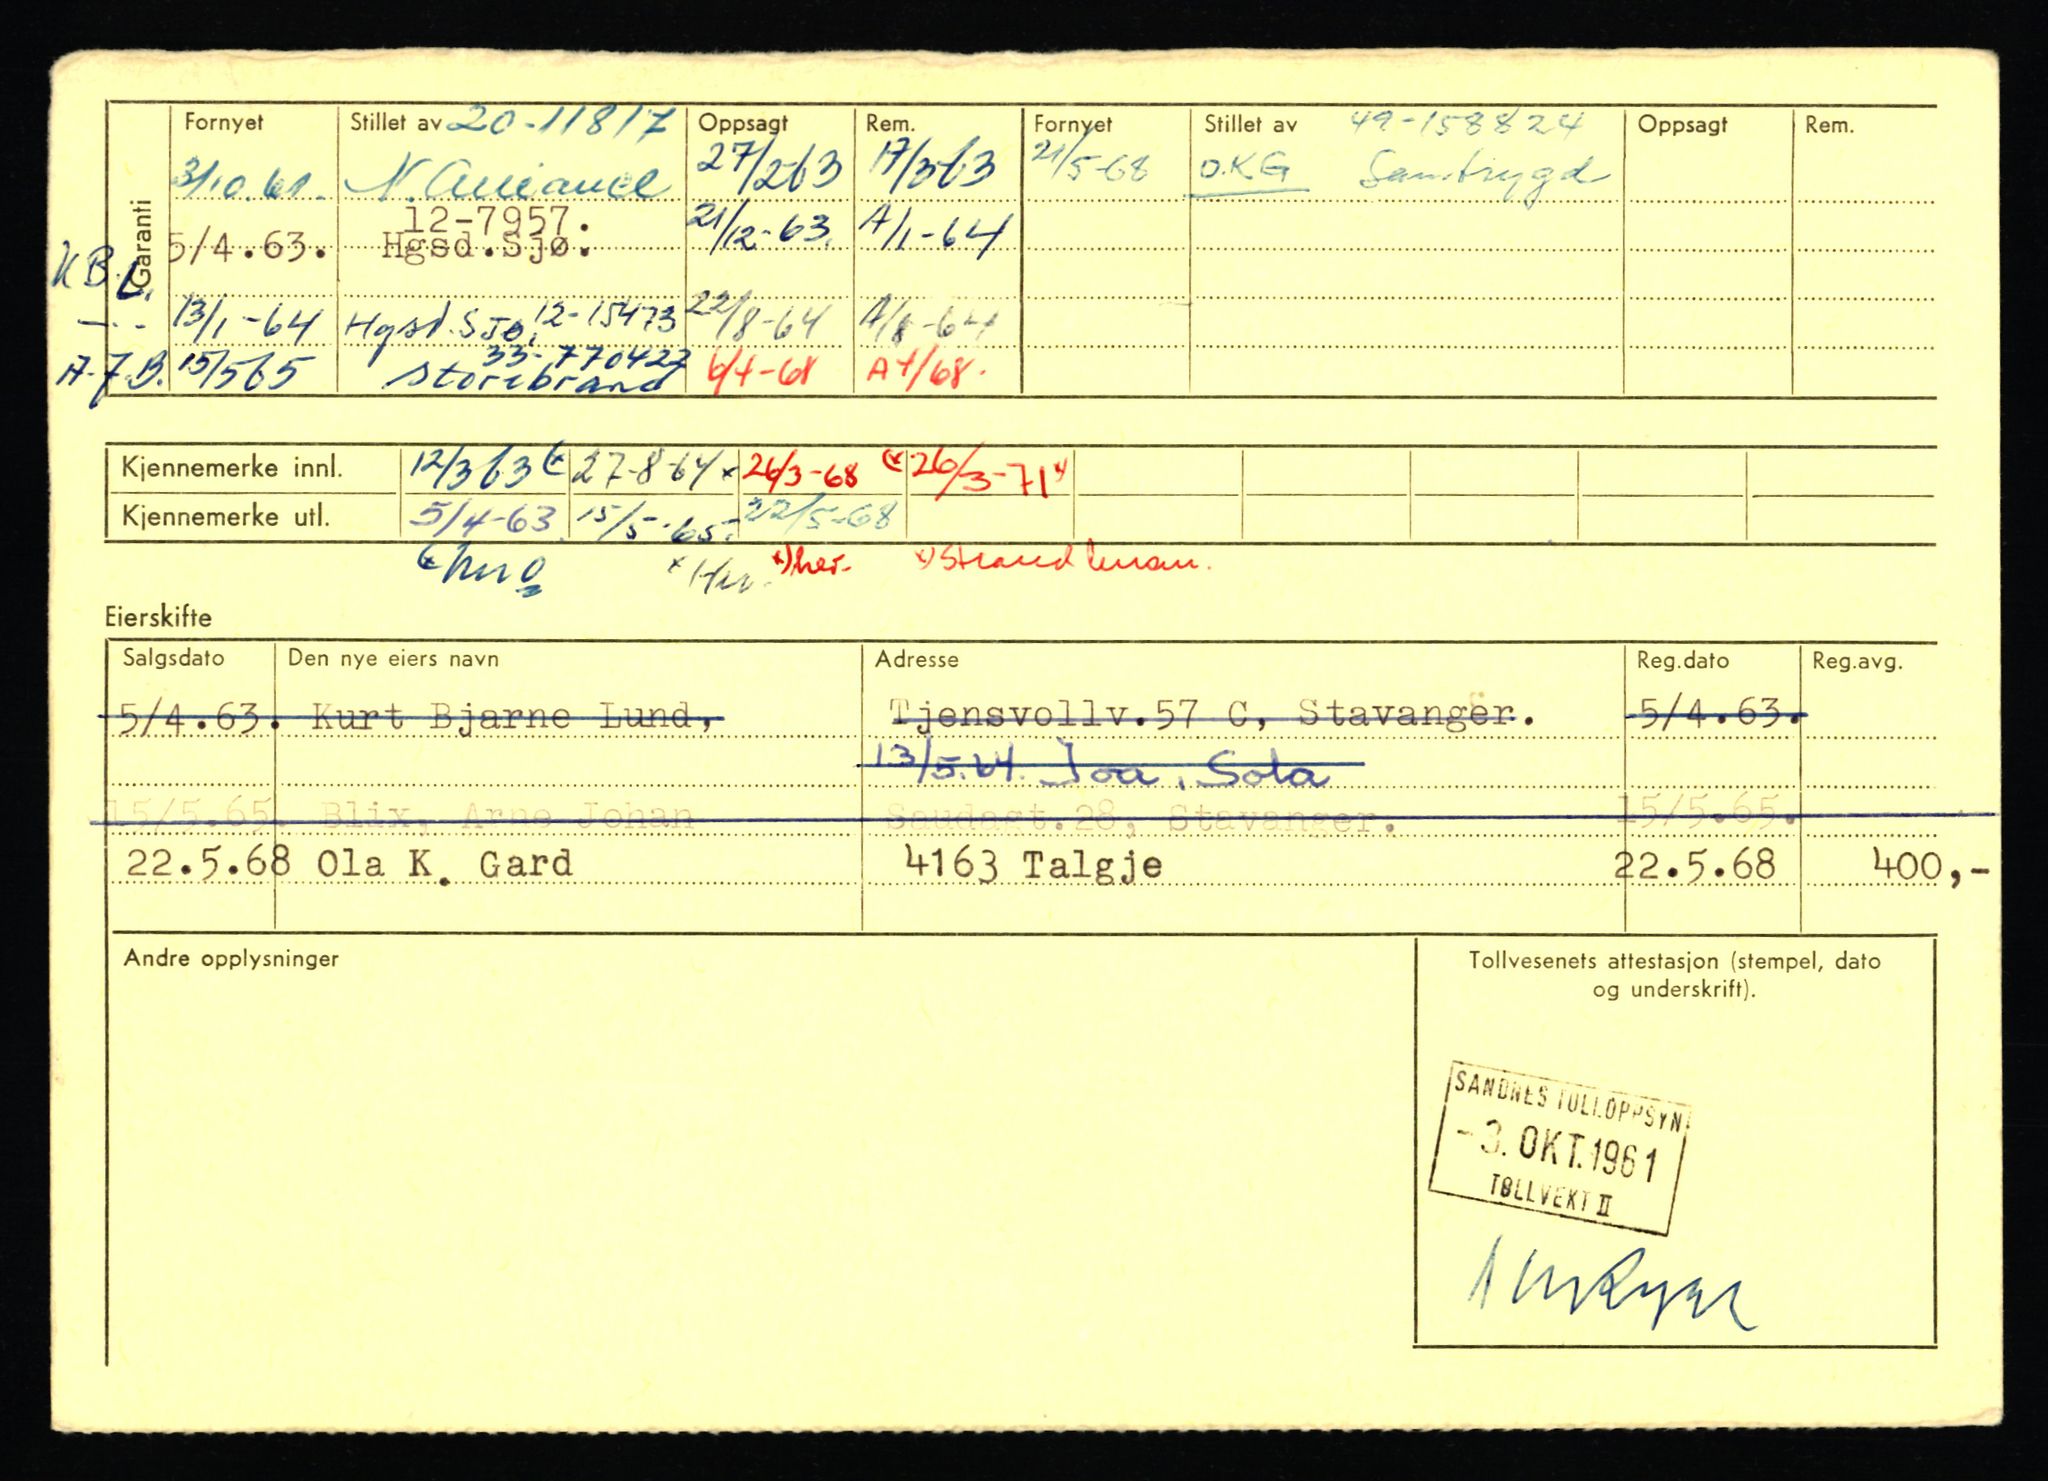 Garanti
Fornyet Stillet av 20-11817 Oppsagt Rem. Fornyet Stillet av 49-158824 Oppsagt Rem.
3/10.61. N. Alliance 27/2 63 17/3 63 21/5-68 O.KG Samtrygd
12-7957.
5/4.63. Hgsd.Sjø. 21/12-63. A/1-64
K B L.
13/1-64 Hgsd. Sjø, 12-15473 22/8-64 A/8-64
33-770422
A.J.B. 15/5 65 Storebrand 6/4-68 A4/68.
Kjennemerke innl. 12/3 63 27-8-64 x 26/3-68 26/3-71
Kjennemerke utl. 5/4-63 15/5-65. 22/5-68
x) her.
Eierskifte
Salgsdato Den nye eiers navn Adresse Reg.dato Reg.avg.
5/4.63. Kurt Bjarne Lund, Tjensvollv.57 C, Stavanger. 5/4.63.
13/5.64. Joa, Sola
15/5.65. Blix, Arne Johan Saudagt.28, Stavanger. 15/5.65.
22.5.68 Ola K. Gard 4163 Talgje 22.5.68 400,-
Andre opplysninger
Tollvesenets attestasjon (stempel, dato
og underskrift).
SANDNES TOLLOPPSYN
-3. OKT. 1961
TOLLVEKT II